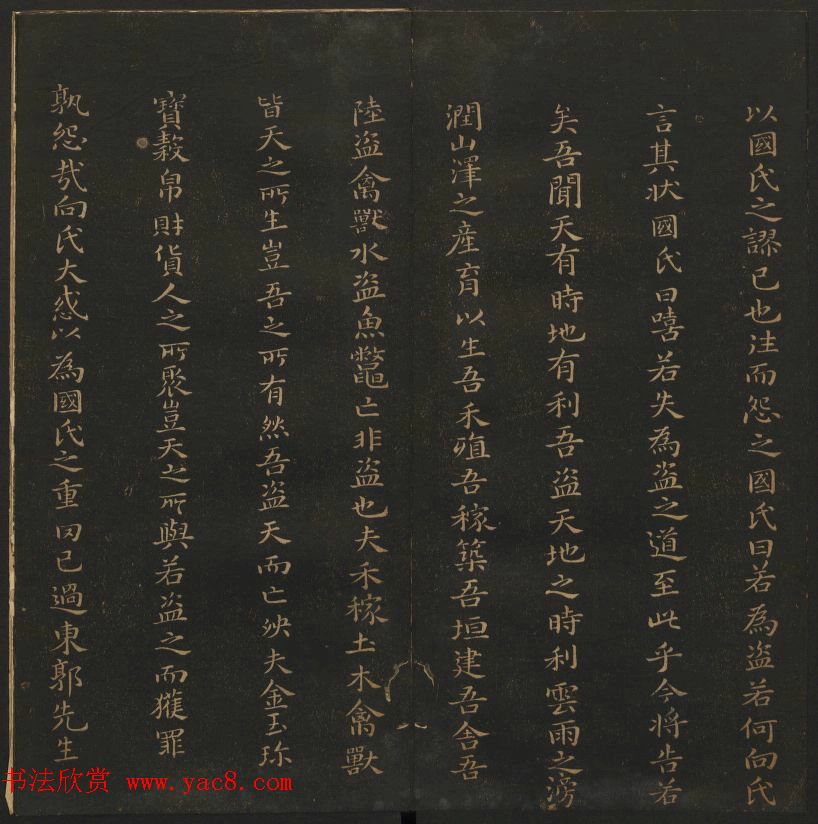 以國氏之謬己也往而怨之國氏曰若為盜若何向氏
言其狀國氏曰嘻若失為盜之道至此乎今將告若
矣吾聞天有時地有利吾盜天地之時利雲雨之滂
潤山澤之產育以生吾禾殖吾稼築吾垣建吾舍吾
陸盜禽獸水盜魚鼈亡非盜也夫禾稼土木禽獸
皆天之所生豈吾之所有然吾盜天而亡殃夫金玉珎
寶穀帛財貨人之所聚豈天之所與若盜之而獲罪
孰怨哉向氏大惑以為國氏之重罔己過東郭先生
书法欣赏 www.yac8.com